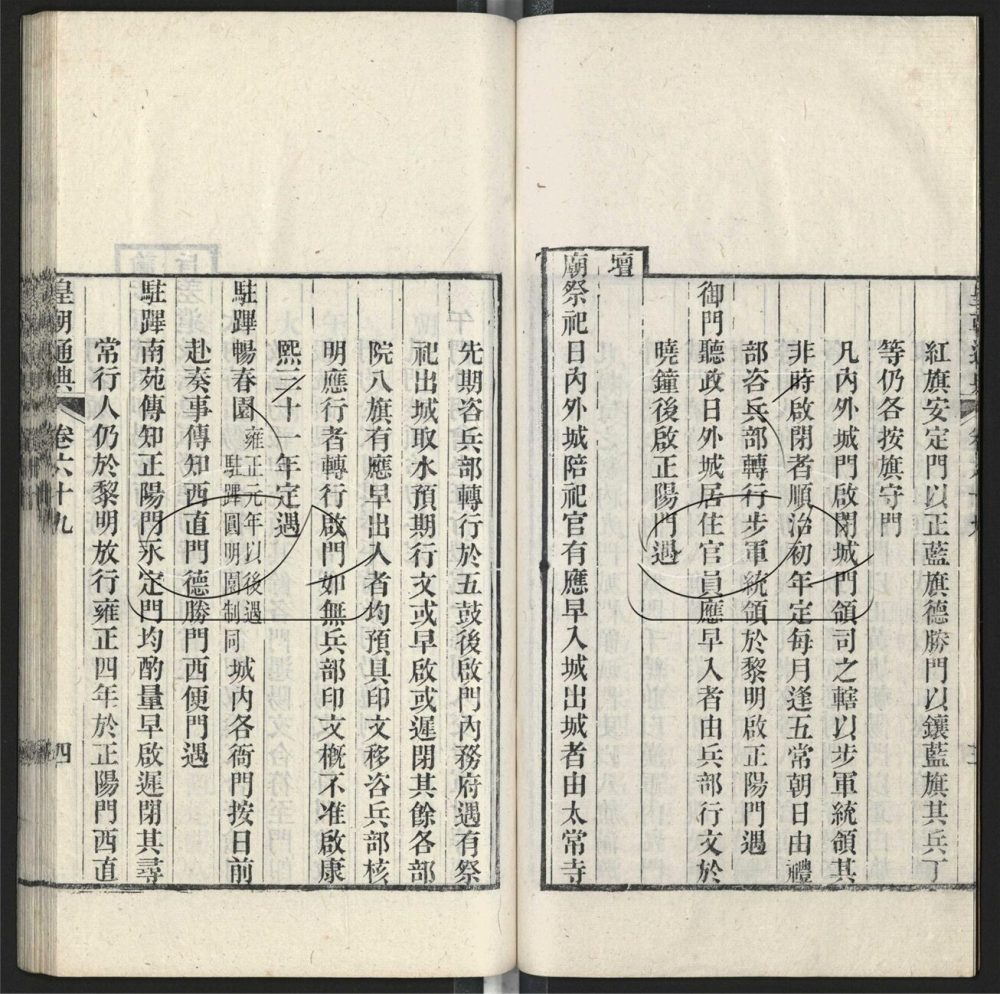 紅旗安定門以正藍旗德勝門以鑲藍旗其兵丁
等仍各按旗守門
凡內外城門啟閉城門領司之轄以步軍統領其
非時啟閉者順治初年定每月逢五常朝日由禮
部咨兵部轉行步軍統領於黎明啟正陽門遇
御門聽政日外城居住官員應早入者由兵部行文於
曉鐘後啟正陽門遇
壇
廟祭祀日內外城陪祀官有應早入城出城者由太常寺
先期咨兵部轉行於五鼓後啟門內務府遇有祭
祀出城取水預期行文或早啟或遲閉其餘各部
院八旗有應早出入者均預具印文移咨兵部核
明應行者轉行啟門如無兵部印文概不准啟康
熙三十一年定遇
駐蹕暢春園雍正元年以後遇駐蹕圓明園制同城內各衙門按日前
赴奏事傳知西直門德勝門西便門遇
駐蹕南苑傳知正陽門永定門均酌量早啟遲閉其尋
常行人仍於黎明放行雍正四年於正陽門西直
皇朝通典 卷六十九 四